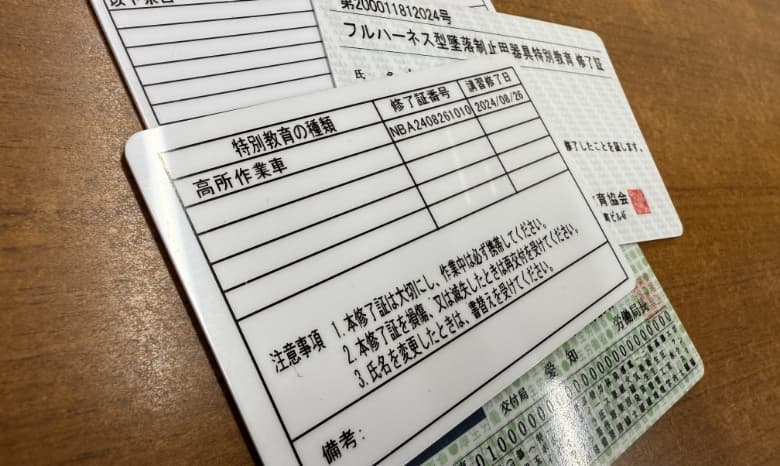 第200011812024号
フルハーネス型墜落制止用器具特別教育 修了証
氏
修了したことを証します。
育協会
特別教育の種類 修了証番号 講習修了日
高所作業車 NBA2408261010 2024/08/26
注意事項 1. 本修了証は大切にし、作業中は必ず携帯してください。
2. 本修了証を損傷、又は滅失したときは再交付を受けてください。
3. 氏名を変更したときは、書替えを受けてください。
備考:
愛知 労働局長
交付局